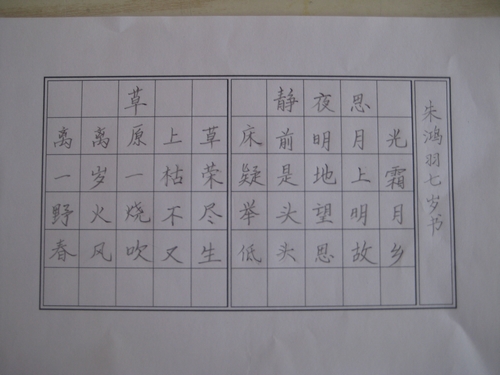 草
离离原上草
一岁一枯荣
野火烧不尽
春风吹又生
静夜思
床前明月光
疑是地上霜
举头望明月
低头思故乡
朱鸿羽七岁书